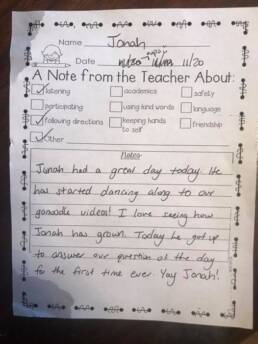 Name Jonah
Date 11/20
A Note from the Teacher About:
listening academics safety
participating using kind words language
following directions keeping hands to self friendship
Other
Notes
Jonah had a great day today. He
has started dancing along to our
gonoodle videos! I love seeing how
Jonah has grown. Today he got up
to answer our question of the day
for the first time ever Yay Jonah!